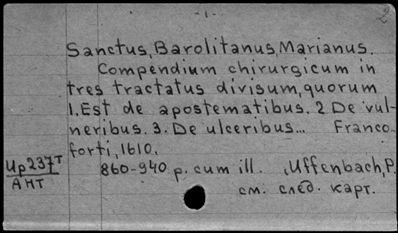 -1-
2
Sanctus, Barolitanus, Marianus.
Compendium chirurgicum in
tres tractatus divisum, quorum
1. Est de apostematibus. 2 De vul-
neribus. 3. De ulceribus... Franco-
forti, 1610.
Цр237т
АНТ
860-940 p. cum ill. (Uffenbach, P.
см. след. карт.